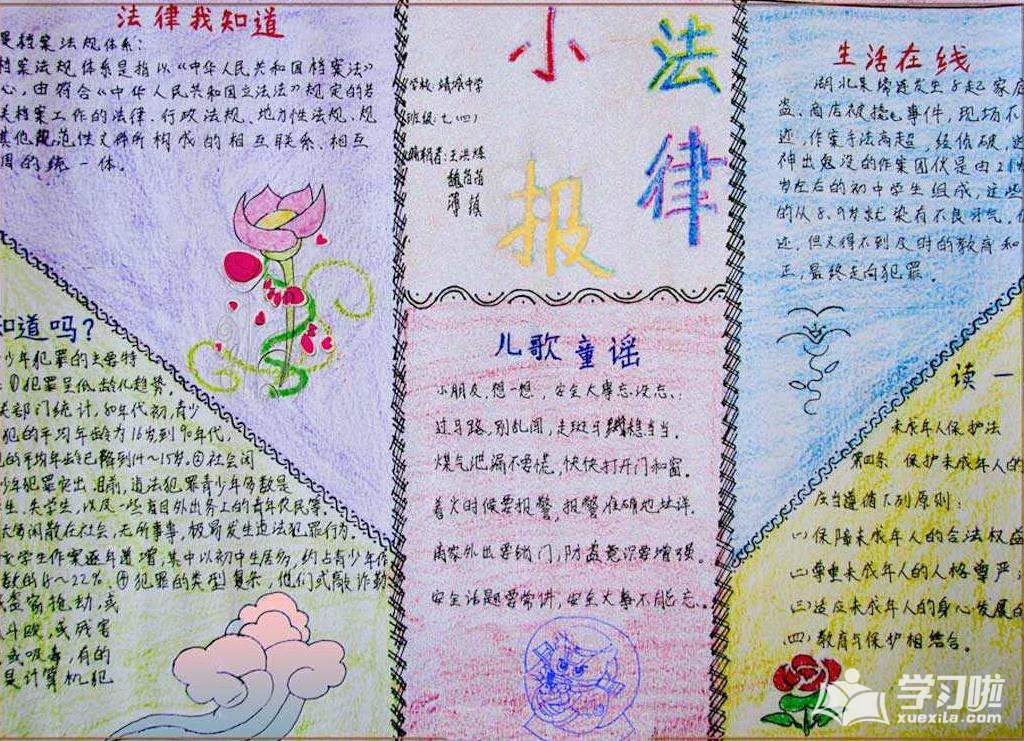 法律我知道
是档案法规体系:
档案法规体系是指以《中华人民共和国档案法》
心,由符合《中华人民共和国立法法》规定的若
关档案工作的法律、行政法规、地方性法规、规
其他规范性文件所构成的相互联系、相互
周的统一体。
知道吗?
少年犯罪的主要特
:①犯罪呈低龄化趋势,
关部门统计,80年代初,青少
犯的平均年龄为16岁到90年代,
的平均年龄已降到14~15岁。②社会闲
少年犯罪突出、诅丽,违法犯罪青少年多数是
生、失学生,以及一些盲目外出务工的青年农民等。
大多闲散在社会,无所事事,极易发生违法犯罪行为。
学生作案逐年递增,其中以初中生居多,约占青少年作
数的4~22%。④犯罪的类型复杂,他们或敲诈勒
盗窃抢劫,或
斗殴,或残害
,或吸毒,有的
是计算机犯
小法律报
学校:靖城中学
班级:七(四)
编辑者:王洪烁
魏苗苗
薄
儿歌童谣
小朋友,想一想,安全大事忘没忘,:
过马路,别乱闯,走斑马线稳当当。
煤气泄漏不要慌,快快打开门和窗。
着火时候要报警,报警准确地址详。
离家外出要锁门,防盗意识要增强。
安全话题要常讲,安全大事不能忘。
生活在线
湖北某埽连发生8起家庭
盗、商店被撬事件,现场不
迹,作案手法高超,经侦破,这
神出鬼没的作案团伙是由2
岁左右的初中学生组成,这些
的从8、9岁就染有不良习气,
迹,但又得不到及时的教育和
正,最终走向犯罪。
读一
未成年人保护法
第四条 保护未成年人的
应当遵循下列原则:
(一)保障未成年人的合法权益
(二)尊重未成年人的人格尊严;
(三)适应未成年人的身心发展的
(四)教育与保护相结合。
学习啦
xuexila.com